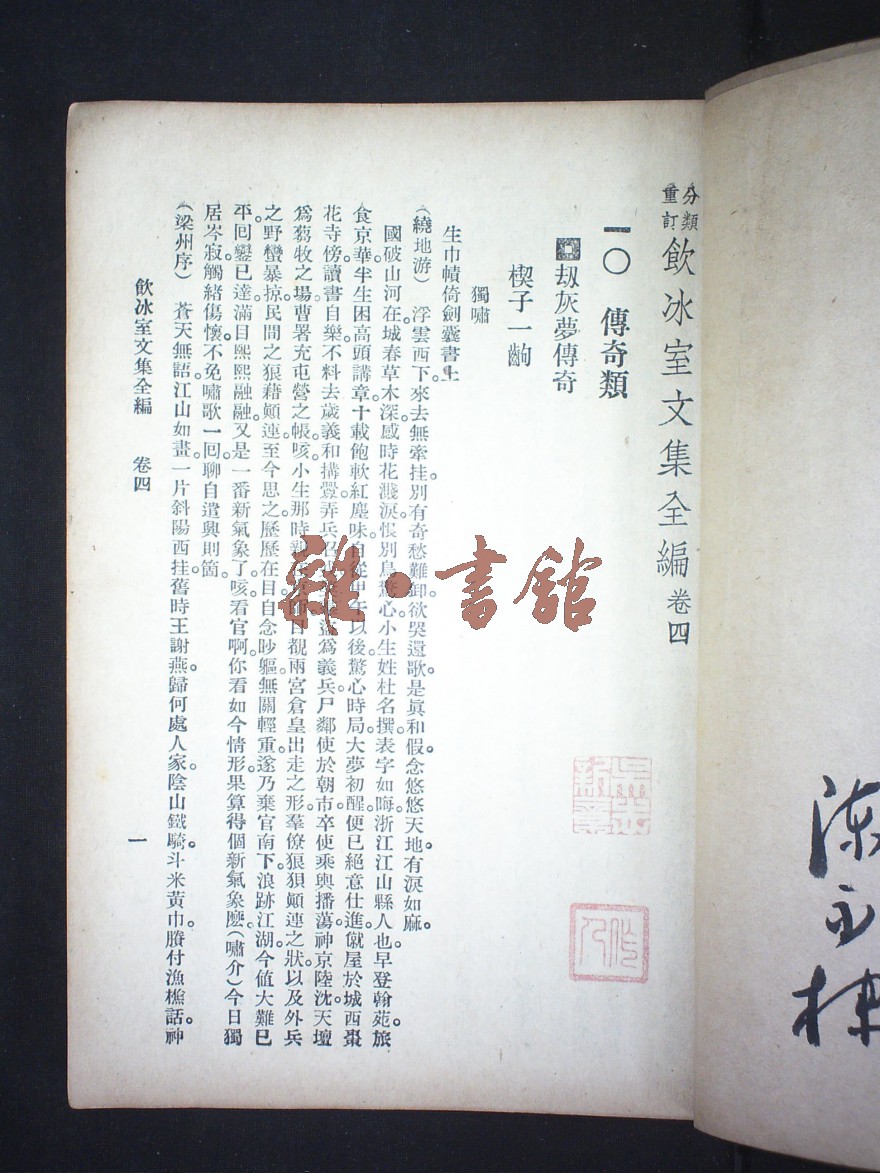 分類
重訂
飲冰室文集全編 卷四
一〇 傳奇類
劫灰夢傳奇
楔子一齣
獨嘯
生巾幘倚劍囊書上
(繞地游) 浮雲西下。來去無牽挂。別有奇愁難卸。欲哭還歌。是眞和假。念悠悠天地。有淚如麻。
國破山河在。城春草木深。感時花濺淚。恨別鳥驚心。小生姓杜名撰。表字如晦。浙江江山縣人也。早登翰苑。旅
食京華。半生困高頭講章。十載飽軟紅塵味。自從甲午以後。驚心時局。大夢初醒。便已絕意仕進。僦屋於城西棗
花寺傍。讀書自樂。不料去歲義和搆釁。弄兵召 爲義兵。尸鄰使於朝市。卒使乘輿播蕩。神京陸沈。天壇
爲芻牧之場。曹署充屯營之帳。咳。小生那時 目覩兩宮倉皇出走之形。羣僚狼狽顚連之狀。以及外兵
之野蠻暴掠。民間之狼藉顚連。至今思之。歷歷在目。自念眇軀無關輕重。遂乃棄官南下。浪跡江湖。今値大難已
平。回鑾已達。滿目熙熙融融。又是一番新氣象了。咳。看官啊。你看如今情形。果算得個新氣象麽。(嘯介)今日獨
居岑寂。觸緒傷懷。不免嘯歌一回。聊自遣興則箇。
(梁州序) 蒼天無語。江山如畫。一片斜陽西挂。舊時王謝。燕歸何處人家。陰山鐵騎。斗米黃巾。賸付漁樵話。神
飲冰室文集全編 卷四
一
雜·書館